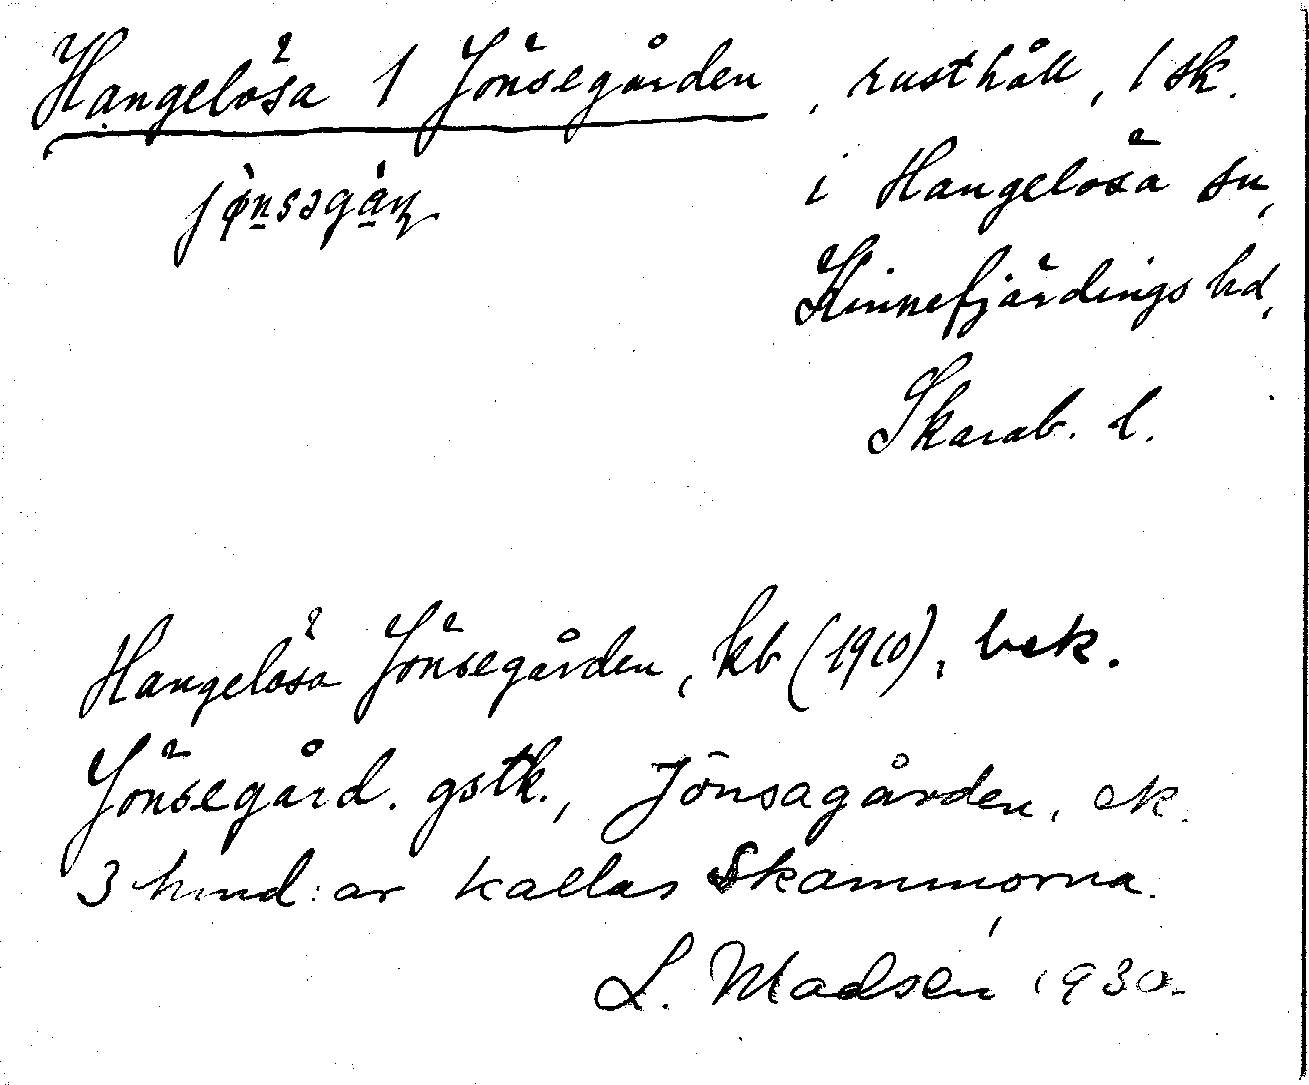 Hangelösa 1 Jönsegården, rusthåll, 1 sk.
i Hangelösa sn,
Kinnefjärdings hd,
Skarab. l.
Hangelösa Jönsegården, kb (1910), bek.
Jönsegård. gstk., Jönsagården, ek.
3 hmd:ar kallas Skammorna.
L. Madsén 1930.